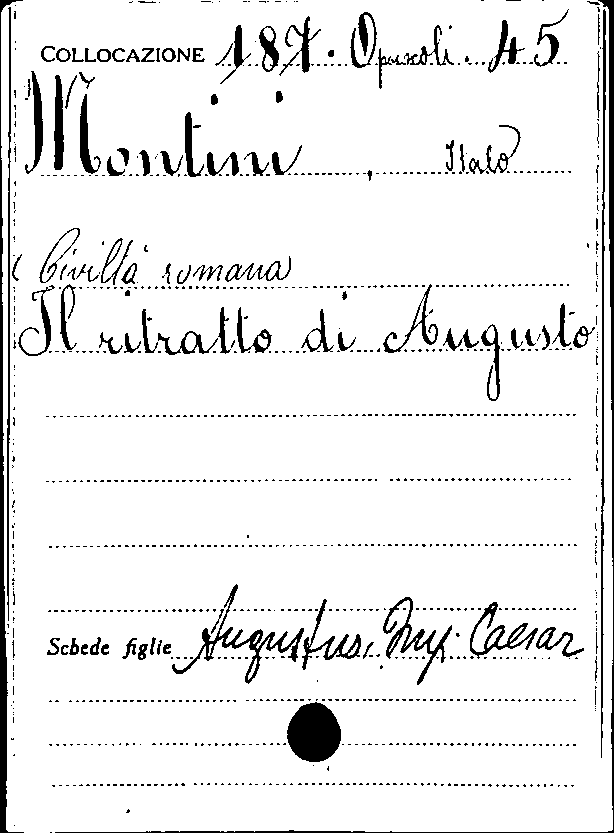 COLLOCAZIONE 187. Opuscoli. 45
Montini, Italo
(Civiltà romana
Il ritratto di Augusto
Schede figlie Augustus, Imp. Caesar